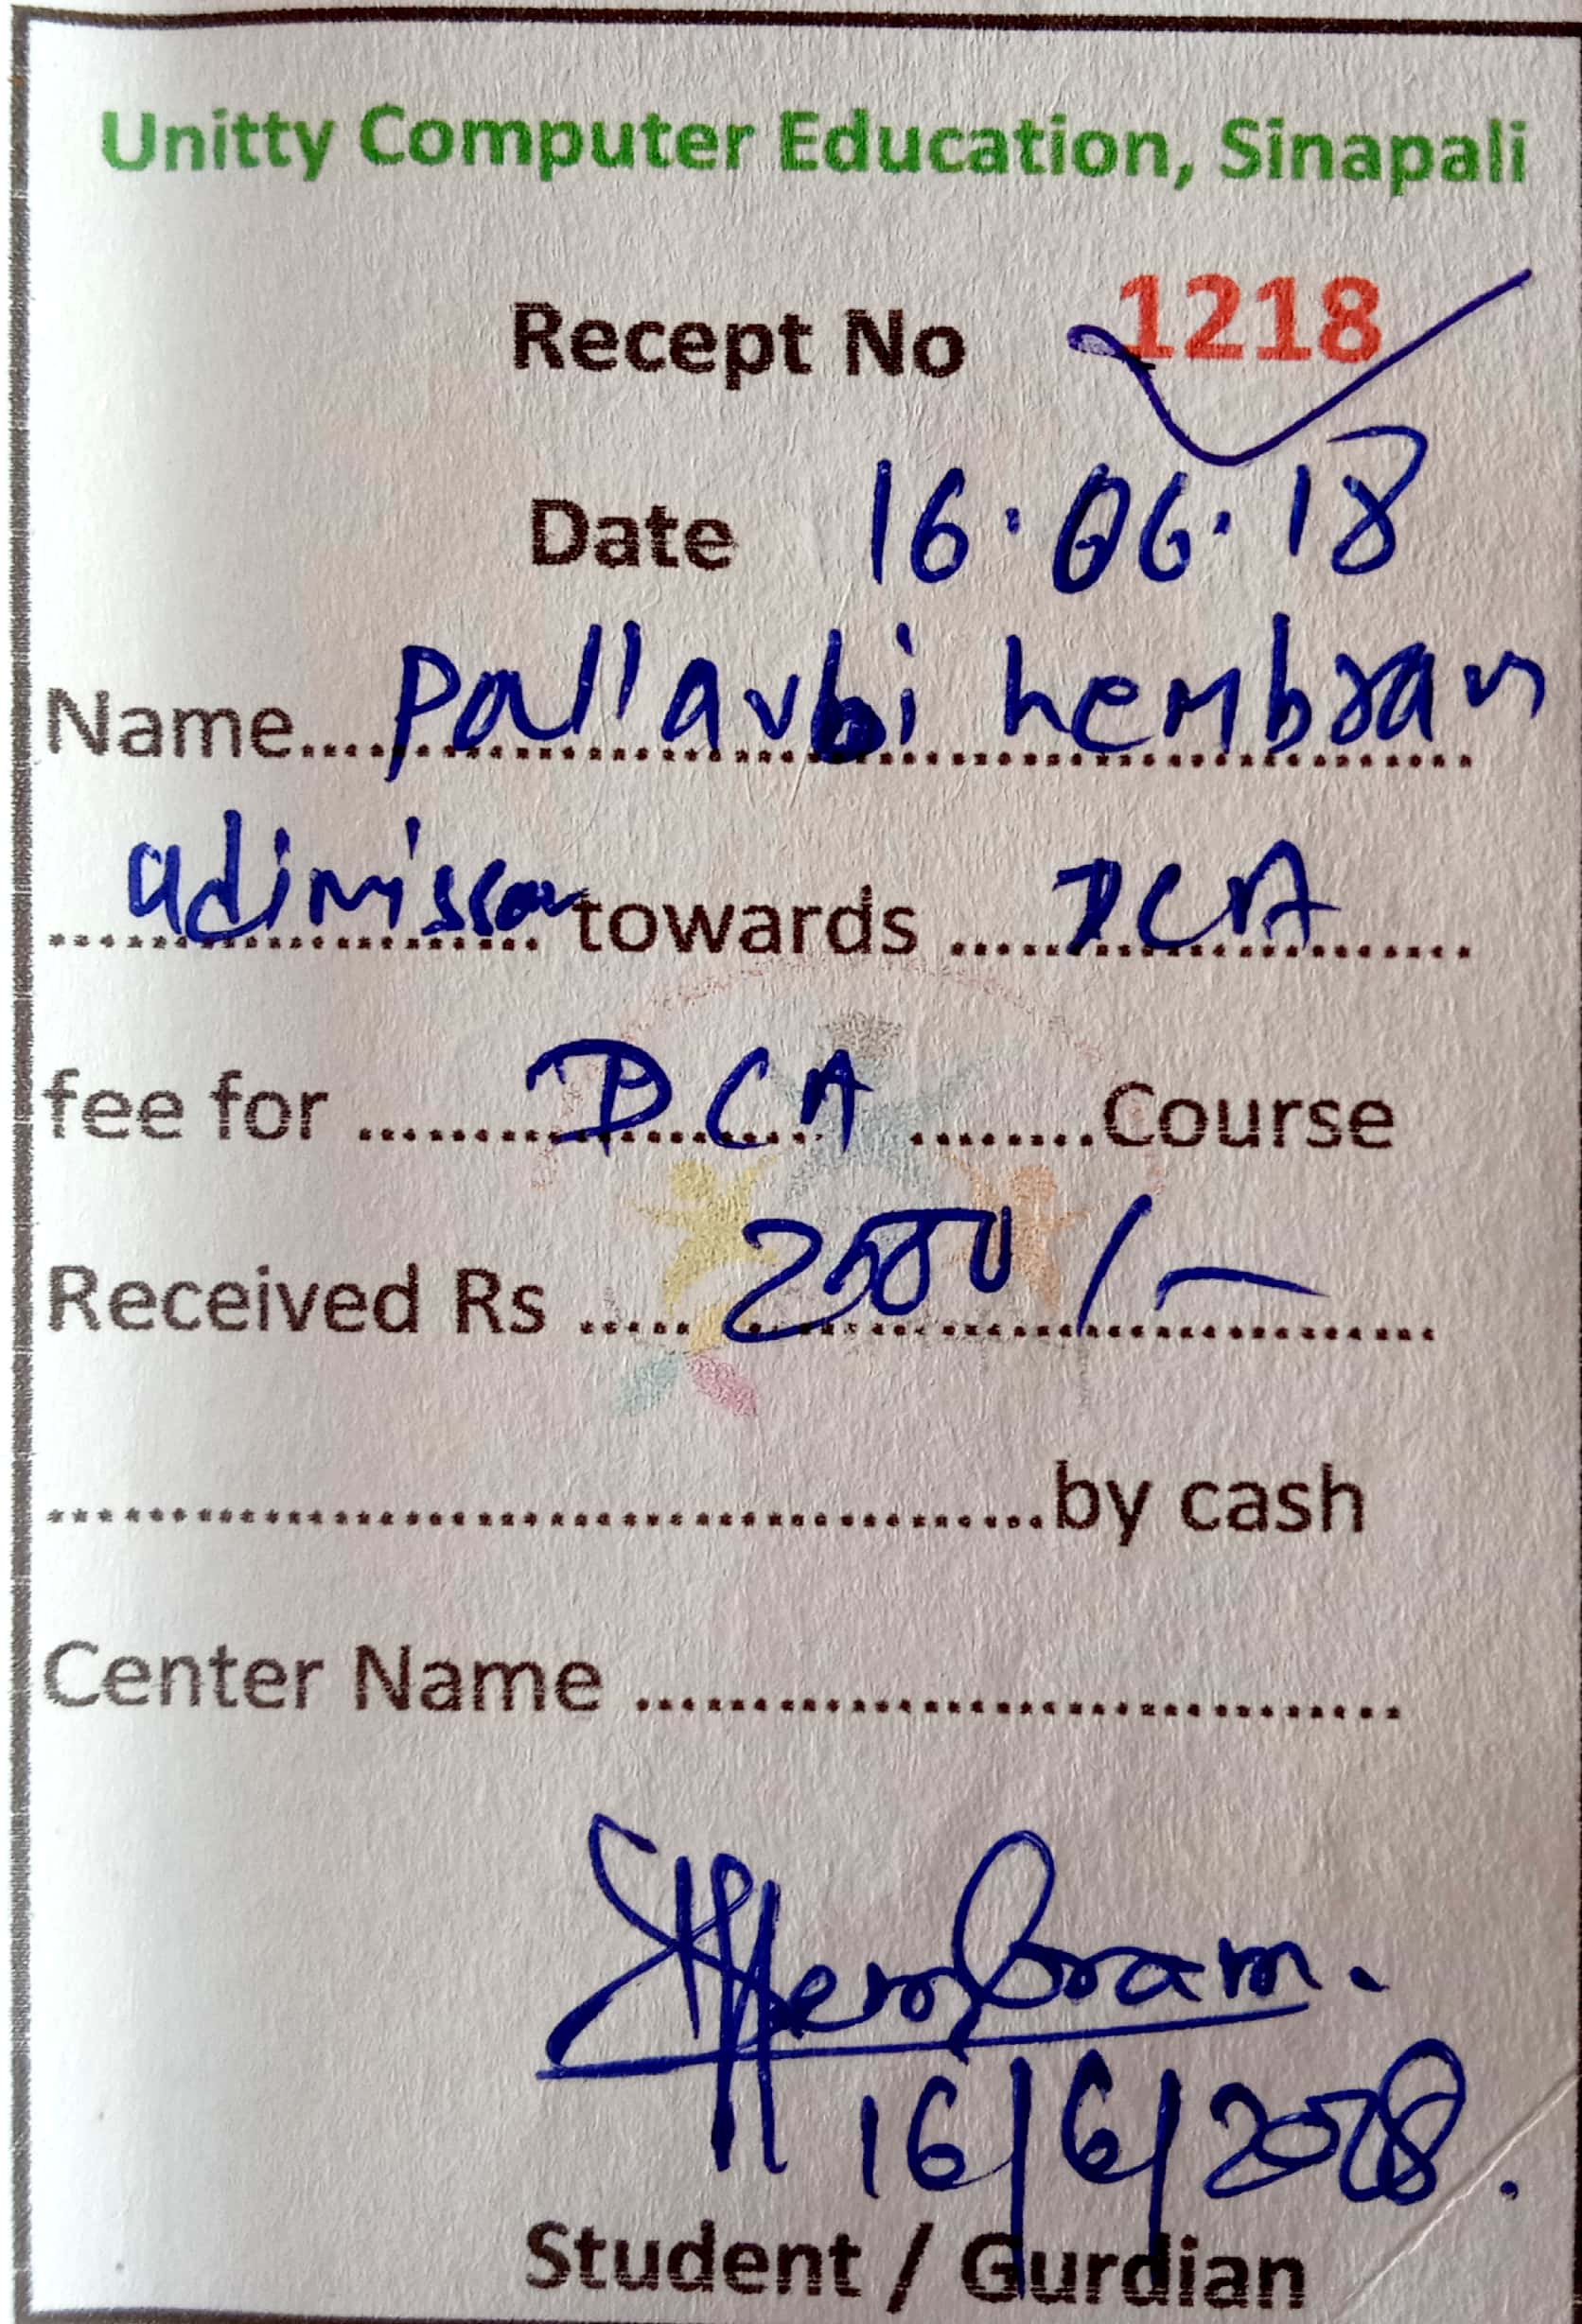 Unitty Computer Education, Sinapali
Recept No 1218
Date 16.06.18
Name.... Pallavbi hembram
adimisson towards ..... DCA
fee for ..... DCA ........Course
Received Rs ..... 2500 /-
by cash
Center Name
Hembram.
16/6/2018.
Student / Gurdian